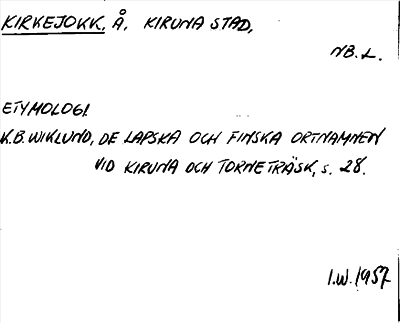 KIRKEJOKK, Å, KIRUNA STAD,
NB. L.
ETYMOLOGI.
K.B. WIKLUND, DE LAPSKA OCH FINSKA ORTNAMNEN
VID KIRUNA OCH TORNETRÄSK, s. 28.
I.W. 1957